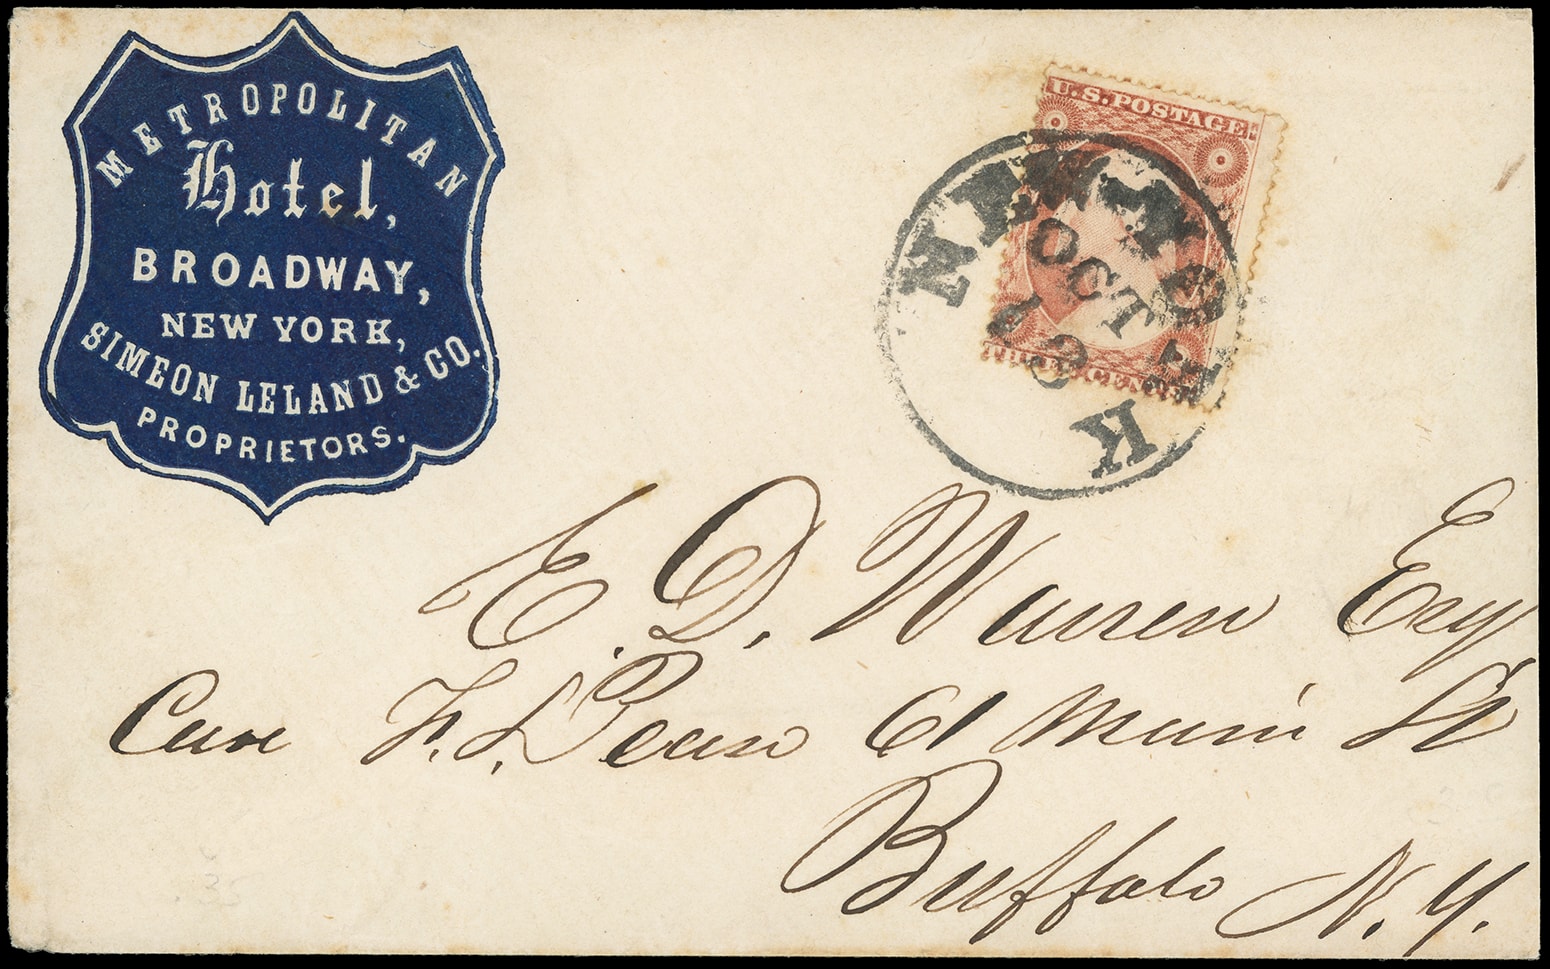 METROPOLITAN
Hotel,
BROADWAY,
NEW YORK,
SIMEON LELAND & CO.
PROPRIETORS.
U.S. POSTAGE
THREE CENTS
NEW-YORK
OCT
E. D. Warren Esq
Care F. S. Pease 61 Main St
Buffalo N. Y.
35